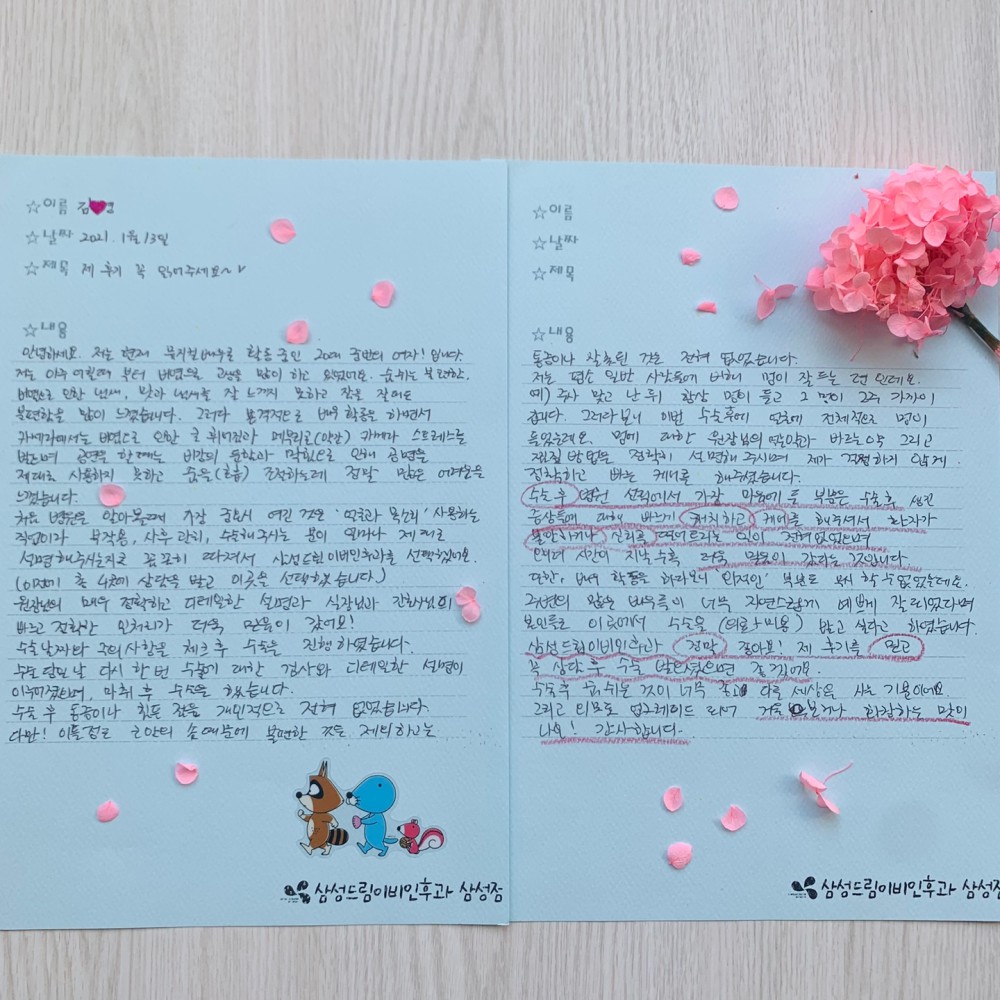 ☆이름 김♥영
☆날짜 2021. 1월 13일
☆제목 제 후기 꼭 읽어주세요~♥
☆내용
안녕하세요. 저는 현재 뮤지컬배우로 활동 중인 20대 중반의 여자! 입니다.
저는 아주 어릴때 부터 비염으로 고생을 많이 하고 있었어요. 숨쉬는 불편함,
비염으로 인한 냄새, 맛과 냄새를 잘 느끼지 못하고 잠을 잘 때도
불편함을 많이 느꼈습니다. 그러다 본격적으로 배우 활동을 하면서
카메라에서는 비염으로 인한 코 휘어짐과 매부리코(약간) 카메라 스트레스를
받으며 공연을 할 때는 비강의 울림과 막힘으로 인해 공명을
제대로 사용하지 못하고 숨을(호흡) 조절하는데 정말 많은 어려움을
느꼈습니다.
처음 병원을 알아볼때 가장 중요시 여긴 것은 '얼굴과 목소리' 사용하는
직업이라 부작용, 사후 관리, 수술해주시는 분이 얼마나 제대로
설명해주시는지로 꼼꼼히 따져서 삼성드림이비인후과를 선택했어요.
(이전에 총 4곳에 상담을 받고 이곳을 선택했습니다.)
원장님의 매우 정확하고 디테일한 설명과 실장님과 간호사님의
빠르고 정확한 일처리가 더욱 믿음이 갔어요!
수술날짜와 주의사항을 체크 후 수술을 진행하였습니다.
수술 당일 날 다시 한 번 수술에 대한 검사와 디테일한 설명이
이루어졌으며, 마취 후 수술을 했습니다.
수술 후 통증이나 힘든 점은 개인적으로 전혀 없었습니다.
다만! 이틀정도 코안의 솜때문에 불편한 것을 제외하고는
삼성드림이비인후과 삼성점
☆이름
☆날짜
☆제목
☆내용
통증이나 잘못된 것은 전혀 없었습니다.
저는 평소 일반 사람들에 비해 멍이 잘 드는 편 인데요.
예) 주사 맞고 난 뒤 항상 멍이 들고 그 멍이 2주 가까이
갑니다. 그러다보니 이번 수술후에 얼굴에 전체적으로 멍이
들었는데요. 멍에 대한 원장님의 먹는약과 바르는약 그리고
찜질 방법을 정확히 설명해 주시며 제가 걱정하지 않게
정확하고 빠른 케어를 해주셨습니다.
수술 후 병원 선택에서 가장 마음에 든 부분은 수술후 생긴
증상들에 대해 빠르게 캐치하고 케어를 해주셔서 환자가
불안하거나 신뢰를 떨어트리는 일이 전혀 없었으며
오히려 시간이 지날 수록 더욱 믿음이 갔다는 것입니다.
또한, 배우 활동을 하다보니 '외적인' 부분도 무시 할 수 없었는데요.
주변의 많은 배우들이 너무 자연스럽게 예쁘게 잘 되었다며
본인들도 이곳에서 수술을 (의료+미용) 받고 싶다고 하였습니다.
삼성드림이비인후과 정말 좋아요! 제 후기를 믿고
꼭 상담 후 수술 받으셨으면 좋겠어요.
수술 후 숨쉬는 것이 너무 좋고 다른 세상을 사는 기분이에요.
그리고 미모도 업그레이드 되서 거울 보거나 화장하는 맛이
나요! 감사합니다.
삼성드림이비인후과 삼성점